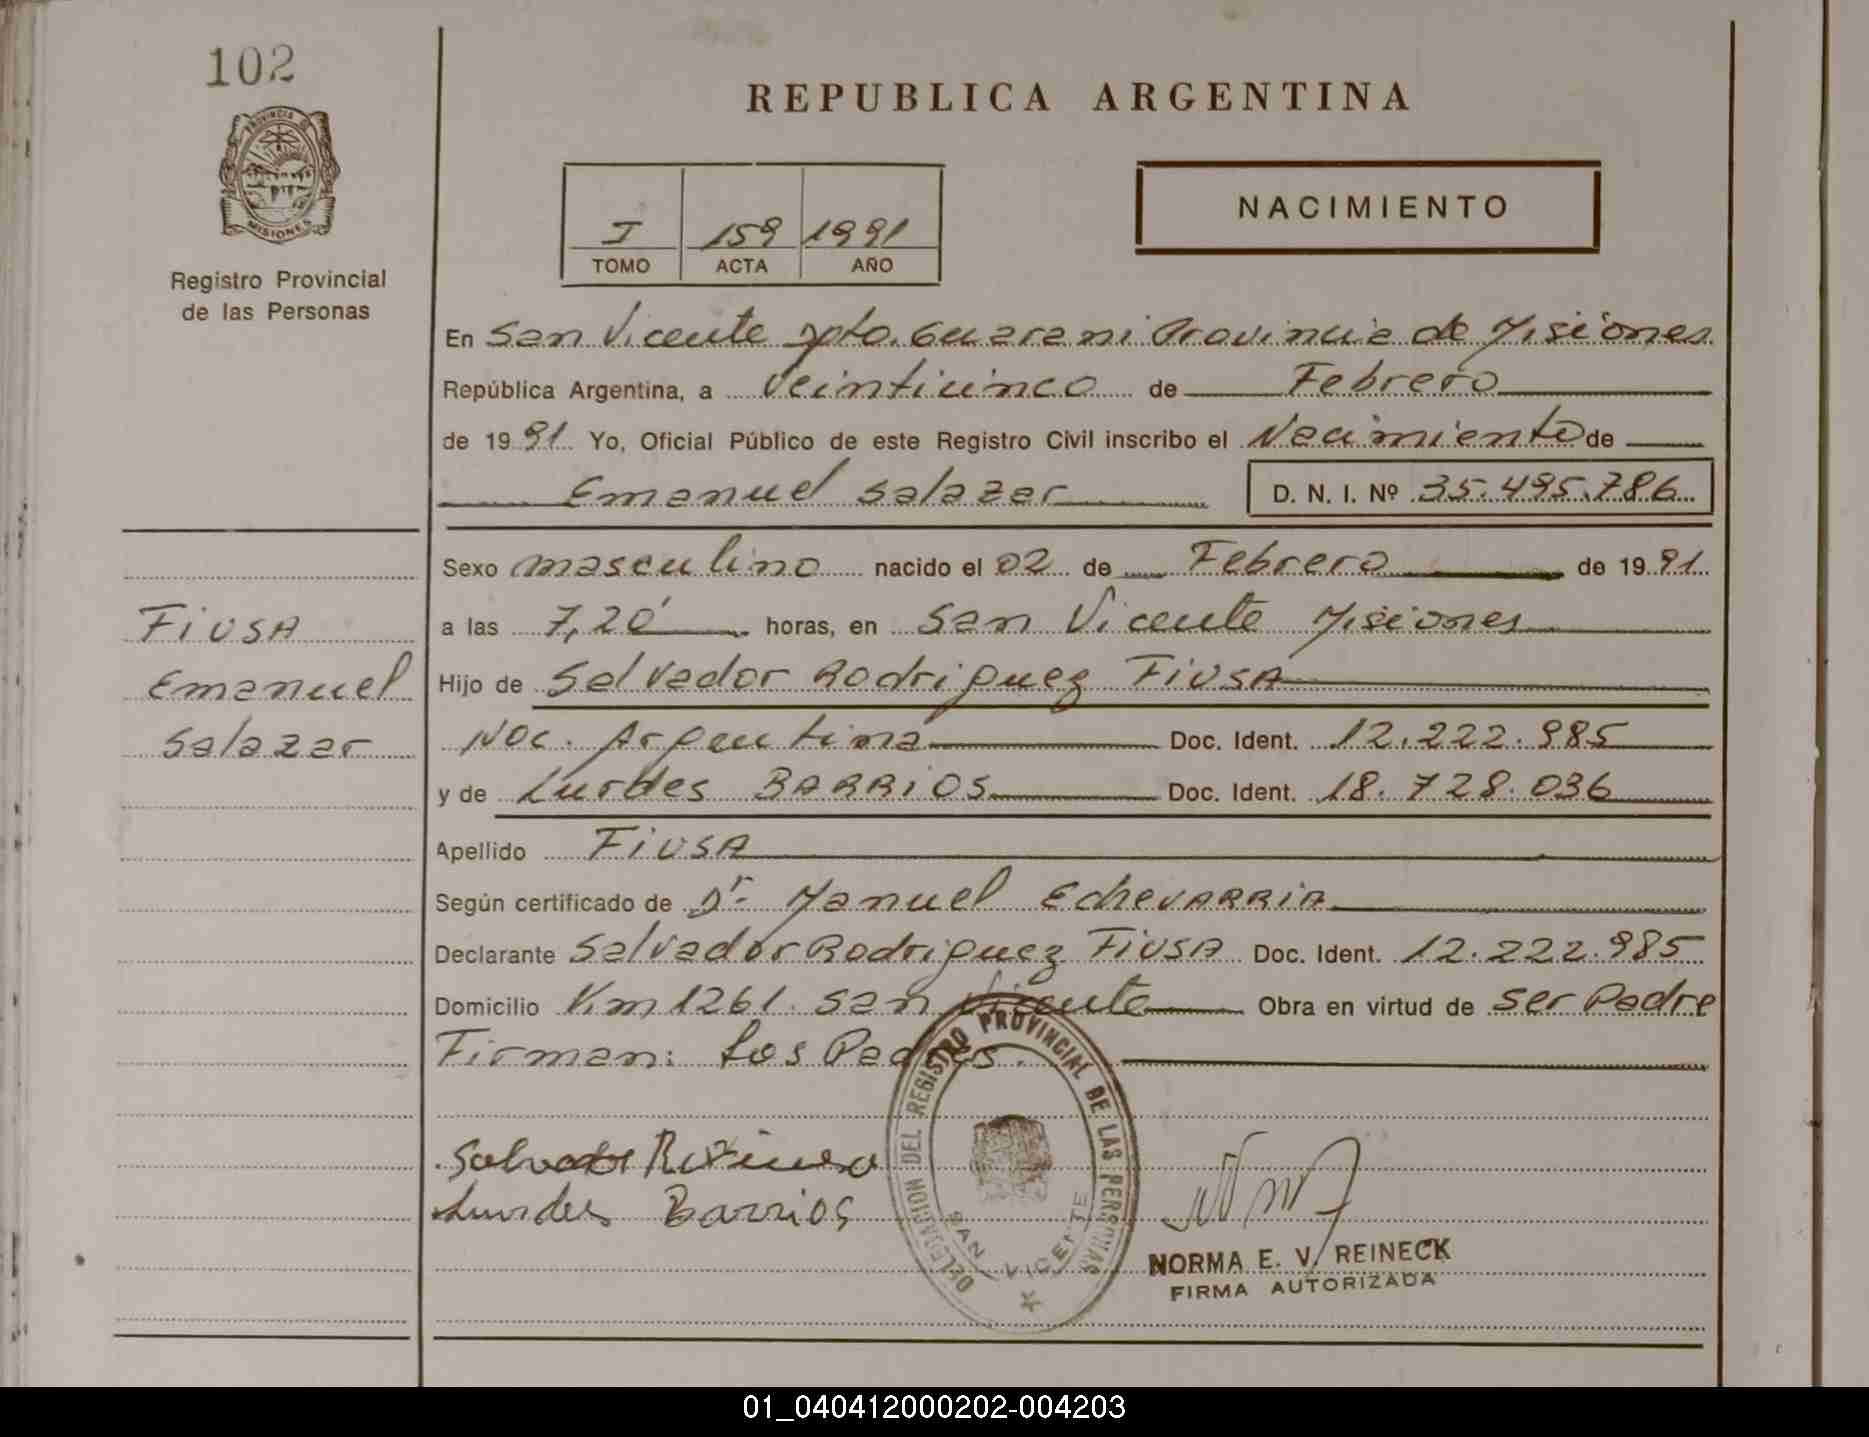 102
REPUBLICA ARGENTINA
PROVINCIA DE
MISIONES
Registro Provincial
de las Personas
I 159 1991
TOMO ACTA AÑO
NACIMIENTO
En San Vicente Dpto. Guarani Provincia de Misiones
República Argentina, a Veinticinco de Febrero
de 1991 Yo, Oficial Público de este Registro Civil inscribo el Nacimiento de
Emanuel Salazar D. N. I. Nº 35.495.786
Sexo masculino nacido el 02 de Febrero de 1991
a las 7,20 horas, en San Vicente Misiones
Hijo de Salvador Rodriguez FiUSA
Nac. Argentina Doc. Ident. 12.222.985
y de Lurdes BARRiOS Doc. Ident. 18.728.036
Apellido FiUSA
Según certificado de Dr. Manuel EcheVARRiA
Declarante Salvador Rodriguez FiUSA Doc. Ident. 12.222.985
Domicilio Km 1261. San Vicente Obra en virtud de Ser Padre
Firman: Los Padres.
FiUSA
Emanuel
Salazar
Lurdes Barrios
DELEGACION DEL REGISTRO PROVINCIAL DE LAS PERSONAS
SAN VICENTE
NORMA E. V. REINECK
FIRMA AUTORIZADA
01_040412000202-004203